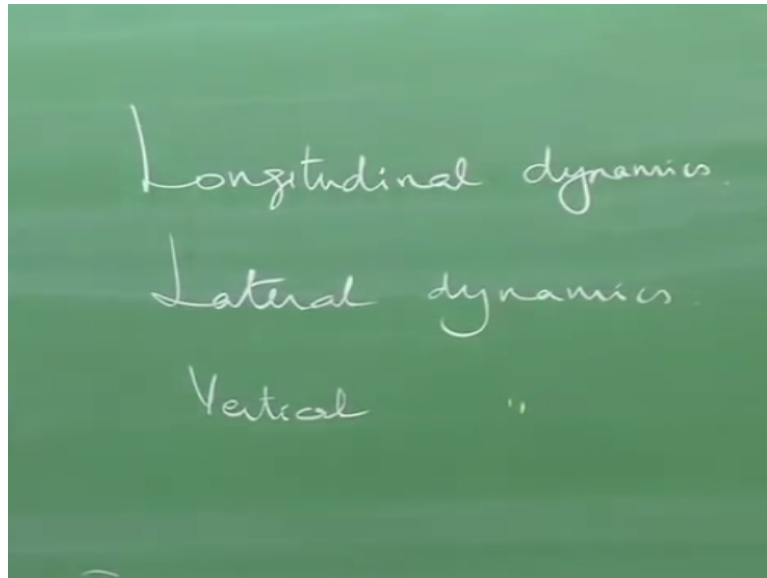 Longitudinal dynamics.
Lateral dynamics.
Vertical "